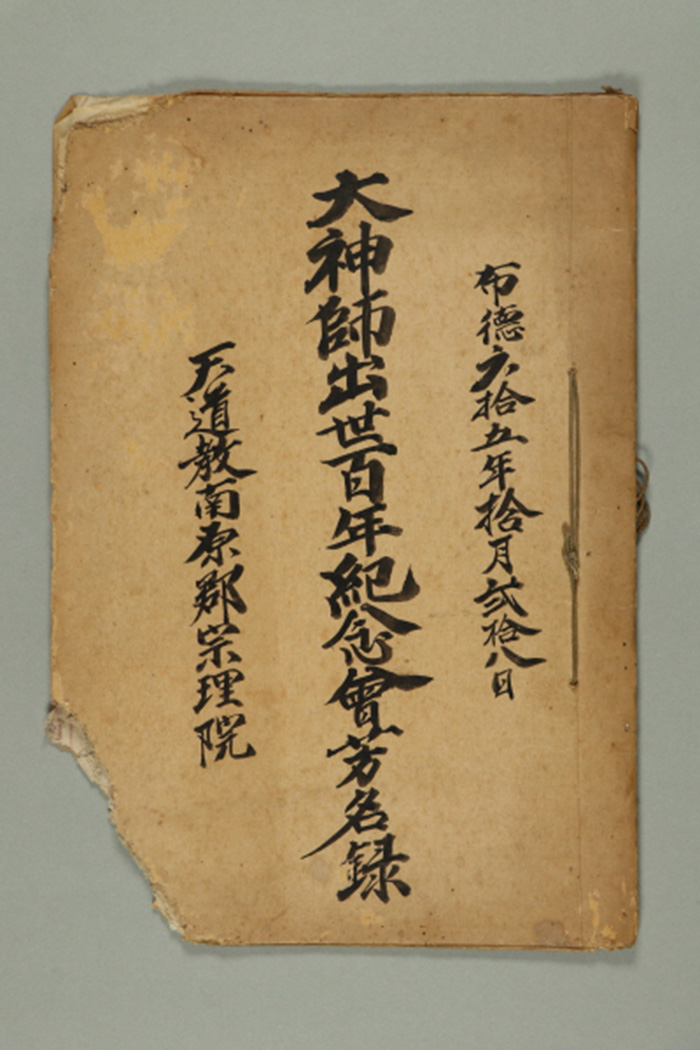 布德六拾五年拾月貳拾八日
大神師出世百年紀念會芳名録
天道敎南原郡宗理院